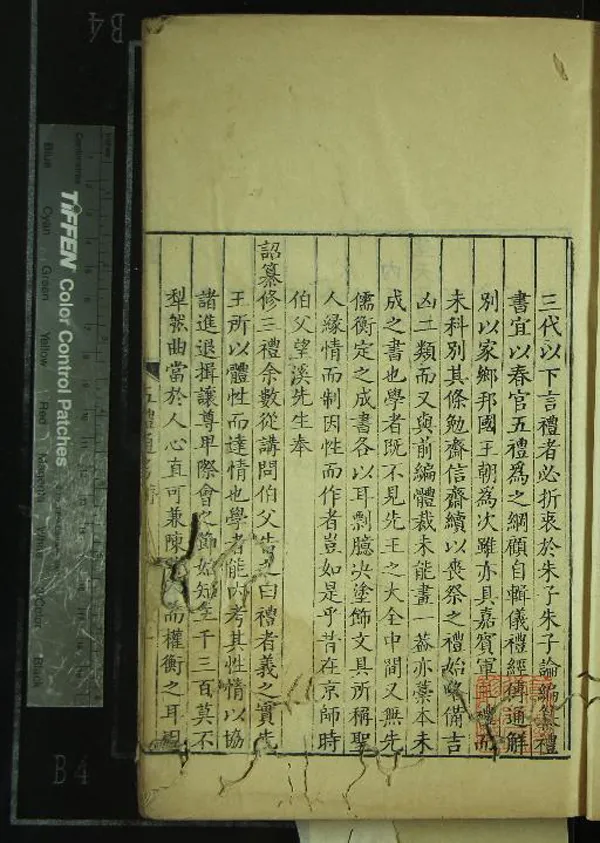 三代以下言禮者必折衷於朱子朱子論編纂禮
書宜以春官五禮爲之綱顧自輯儀禮經傳通解
別以家鄉邦國王朝爲次雖亦具嘉賓軍禮而
未科別其條勉齋信齋續以喪祭之禮始畧備吉
凶二類而又與前編體裁未能畫一葢亦藁本未
成之書也學者既不見先王之大全中間又無先
儒衡定之成書各以耳剽臆決塗飾文具所稱聖
人緣情而制因性而作者豈如是乎昔在京師時
伯父望溪先生奉
詔纂修三禮余數從講問伯父告之曰禮者義之實先
王所以體性而達情也學者能內考其性情以協
諸進退揖讓尊卑際會之節如知至千三百莫不
犁然曲當於人心直可兼陳而權衡之耳
五禮通考 序
TIFFEN Color Control Patches
Blue
Cyan
Green
Yellow
Red
Magenta
White
3/Color
Black
Centimetres
Inches
B4
B4